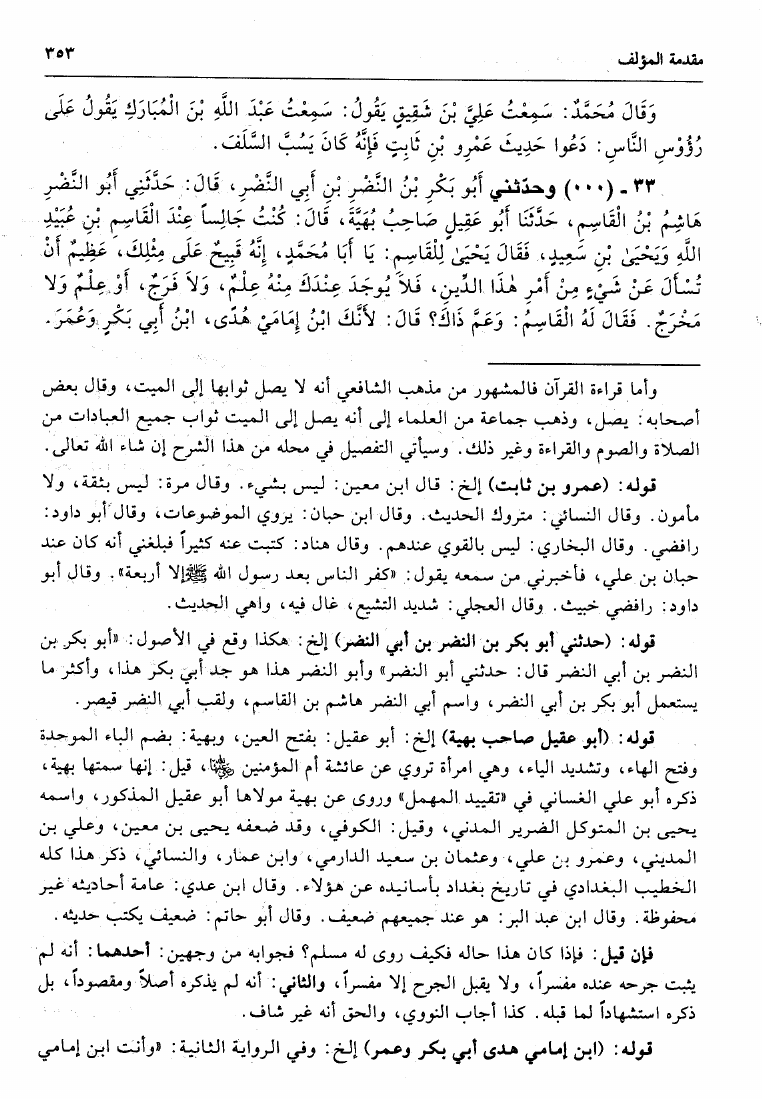 مقدمة المؤلف ٣٥٣
وَقَالَ مُحَمَّدٌ: سَمِعْتُ عَلِيَّ بْنَ شَقِيقٍ يَقُولُ: سَمِعْتُ عَبْدَ اللَّهِ بْنَ الْمُبَارَكِ يَقُولُ عَلَى
رُؤُوْسِ النَّاسِ: دَعُوا حَدِيثَ عَمْرِو بْنِ ثَابِتٍ فَإِنَّهُ كَانَ يَسُبُّ السَّلَفَ.
٣٣ - (٠٠٠) وحدّثني أَبُو بَكْرِ بْنُ النَّضْرِ بْنِ أَبِي النَّضْرِ، قَالَ: حَدَّثَنِي أَبُو النَّضْرِ
هَاشِمُ بْنُ الْقَاسِمِ، حَدَّثَنَا أَبُو عَقِيلٍ صَاحِبُ بُهَيَّةَ، قَالَ: كُنْتُ جَالِساً عِنْدَ الْقَاسِمِ بْنِ عُبَيْدِ
اللَّهِ وَيَحْيَىٰ بْنِ سَعِيدٍ، فَقَالَ يَحْيَىٰ لِلْقَاسِمِ: يَا أَبَا مُحَمَّدٍ، إِنَّهُ قَبِيحٌ عَلَى مِثْلِكَ، عَظِيمٌ أَنْ
تُسْأَلَ عَنْ شَيْءٍ مِنْ أَمْرِ هٰذَا الدِّينِ، فَلاَ يُوجَدَ عِنْدَكَ مِنْهُ عِلْمٌ، وَلاَ فَرَجٌ، أَوْ عِلْمٌ وَلاَ
مَخْرَجٌ. فَقَالَ لَهُ الْقَاسِمُ: وَعَمَّ ذَاكَ؟ قَالَ: لأَنَّكَ ابْنُ إِمَامَيْ هُدًى، ابْنُ أَبِي بَكْرٍ وَعُمَرَ.
وأما قراءة القرآن فالمشهور من مذهب الشافعي أنه لا يصل ثوابها إلى الميت، وقال بعض
أصحابه: يصل، وذهب جماعة من العلماء إلى أنه يصل إلى الميت ثواب جميع العبادات من
الصلاة والصوم والقراءة وغير ذلك. وسيأتي التفصيل في محله من هذا الشرح إن شاء الله تعالى.
قوله: (عمرو بن ثابت) إلخ: قال ابن معين: ليس بشيء. وقال مرة: ليس بثقة، ولا
مأمون. وقال النسائي: متروك الحديث. وقال ابن حبان: يروي الموضوعات، وقال أبو داود:
رافضي. وقال البخاري: ليس بالقوي عندهم. وقال هناد: كتبت عنه كثيراً فبلغني أنه كان عند
حبان بن علي، فأخبرني من سمعه يقول: «كفر الناس بعد رسول الله ﷺ إلا أربعة». وقال أبو
داود: رافضي خبيث. وقال العجلي: شديد التشيع، غال فيه، واهي الحديث.
قوله: (حدثني أبو بكر بن النضر بن أبي النضر) إلخ: هكذا وقع في الأصول: «أبو بكر بن
النضر بن أبي النضر قال: حدثني أبو النضر» وأبو النضر هذا هو جد أبي بكر هذا، وأكثر ما
يستعمل أبو بكر بن أبي النضر، واسم أبي النضر هاشم بن القاسم، ولقب أبي النضر قيصر.
قوله: (أبو عقيل صاحب بهية) إلخ: أبو عقيل: بفتح العين، وبهية: بضم الباء الموحدة
وفتح الهاء، وتشديد الياء، وهي امرأة تروي عن عائشة أم المؤمنين، قيل: إنها سمتها بهية،
ذكره أبو علي الغساني في «تقييد المهمل» وروى عن بهية مولاها أبو عقيل المذكور، واسمه
يحيى بن المتوكل الضرير المدني، وقيل: الكوفي، وقد ضعفه يحيى بن معين، وعلي بن
المديني، وعمرو بن علي، وعثمان بن سعيد الدارمي، وابن عمار، والنسائي، ذكر هذا كله
الخطيب البغدادي في تاريخ بغداد بأسانيده عن هؤلاء. وقال ابن عدي: عامة أحاديثه غير
محفوظة. وقال ابن عبد البر: هو عند جميعهم ضعيف. وقال أبو حاتم: ضعيف يكتب حديثه.
فإن قيل: فإذا كان هذا حاله فكيف روى له مسلم؟ فجوابه من وجهين: أحدهما: أنه لم
يثبت جرحه عنده مفسراً، ولا يقبل الجرح إلا مفسراً، والثاني: أنه لم يذكره أصلاً ومقصوداً، بل
ذكره استشهاداً لما قبله. كذا أجاب النووي، والحق أنه غير شاف.
قوله: (ابن إمامي هدى أبي بكر وعمر) إلخ: وفي الرواية الثانية: «وأنت ابن إمامي